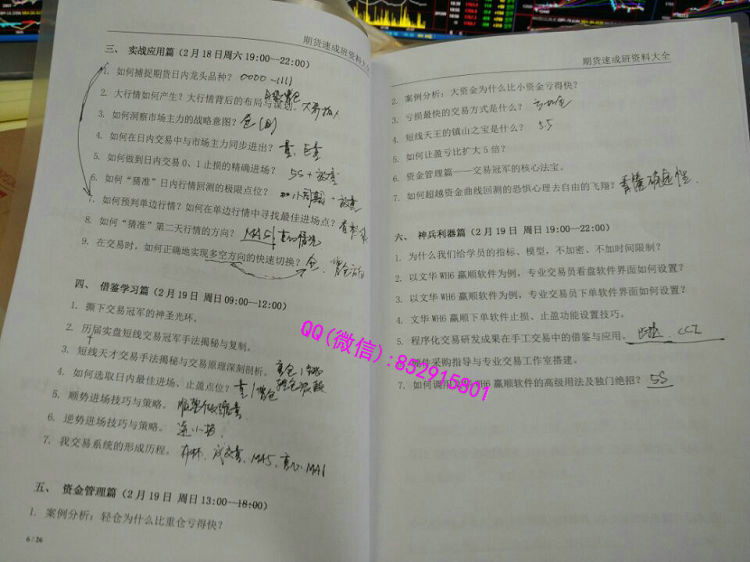 期货速成班资料大全
三、 实战应用篇（2 月 18 日周六 19:00—22:00）
1. 如何捕捉期货日内龙头品种？ 0000
2. 大行情如何产生？大行情背后的布局与谋划。
3. 如何洞察市场主力的战略意图？ 仓
4. 如何在日内交易中与市场主力同步进出？ 量、
5. 如何做到日内交易 0、1 止损的精确进场？ 5S +
6. 如何“猜准”日内行情回测的极限点位？
7. 如何预判单边行情？如何在单边行情中寻找最佳进场点？
8. 如何“猜准”第二天行情的方向？ MA5
9. 在交易时，如何正确地实现多空方向的快速切换？ 仓、
四、 借鉴学习篇（2 月 19 日 周日 09:00—12:00）
1. 撕下交易冠军的神圣光环。
2. 历届实盘短线交易冠军手法揭秘与复制。
3. 短线天才交易手法揭秘与交易原理深刻剖析。
4. 如何选取日内最佳进场、止盈点位？ 量
5. 顺势进场技巧与策略。
6. 逆势进场技巧与策略。
7. 我交易系统的形成历程。 布林、成交量、MA5、
五、 资金管理篇（2 月 19 日 周日 13:00—18:00）
1. 案例分析：轻仓为什么比重仓亏得快？
6 / 26
期货速成班资料大全
2. 案例分析：大资金为什么比小资金亏得快？
3. 亏损最快的交易方式是什么？
4. 短线天王的镇山之宝是什么？ 5S
5. 如何让盈亏比扩大 5 倍？
6. 资金管理篇——交易冠军的核心法宝。
7. 如何超越资金曲线回测的恐惧心理去自由的飞翔？
六、 神兵利器篇（2 月 19 日 周日 19:00—22:00）
1. 为什么我们给学员的指标、模型，不加密、不加时间限制？
2. 以文华 WH6 赢顺软件为例，专业交易员看盘软件界面如何设置？
3. 以文华 WH6 赢顺软件为例，专业交易员下单软件界面如何设置？
4. 文华 WH6 赢顺下单软件止损、止盈功能设置技巧。
5. 程序化交易研发成果在手工交易中的借鉴与应用。 CCI
硬件采购指导与专业交易工作室搭建。
7. 如何调用 WH6 赢顺软件的高级用法及独门绝招？ 5S
QQ(微信):852915801